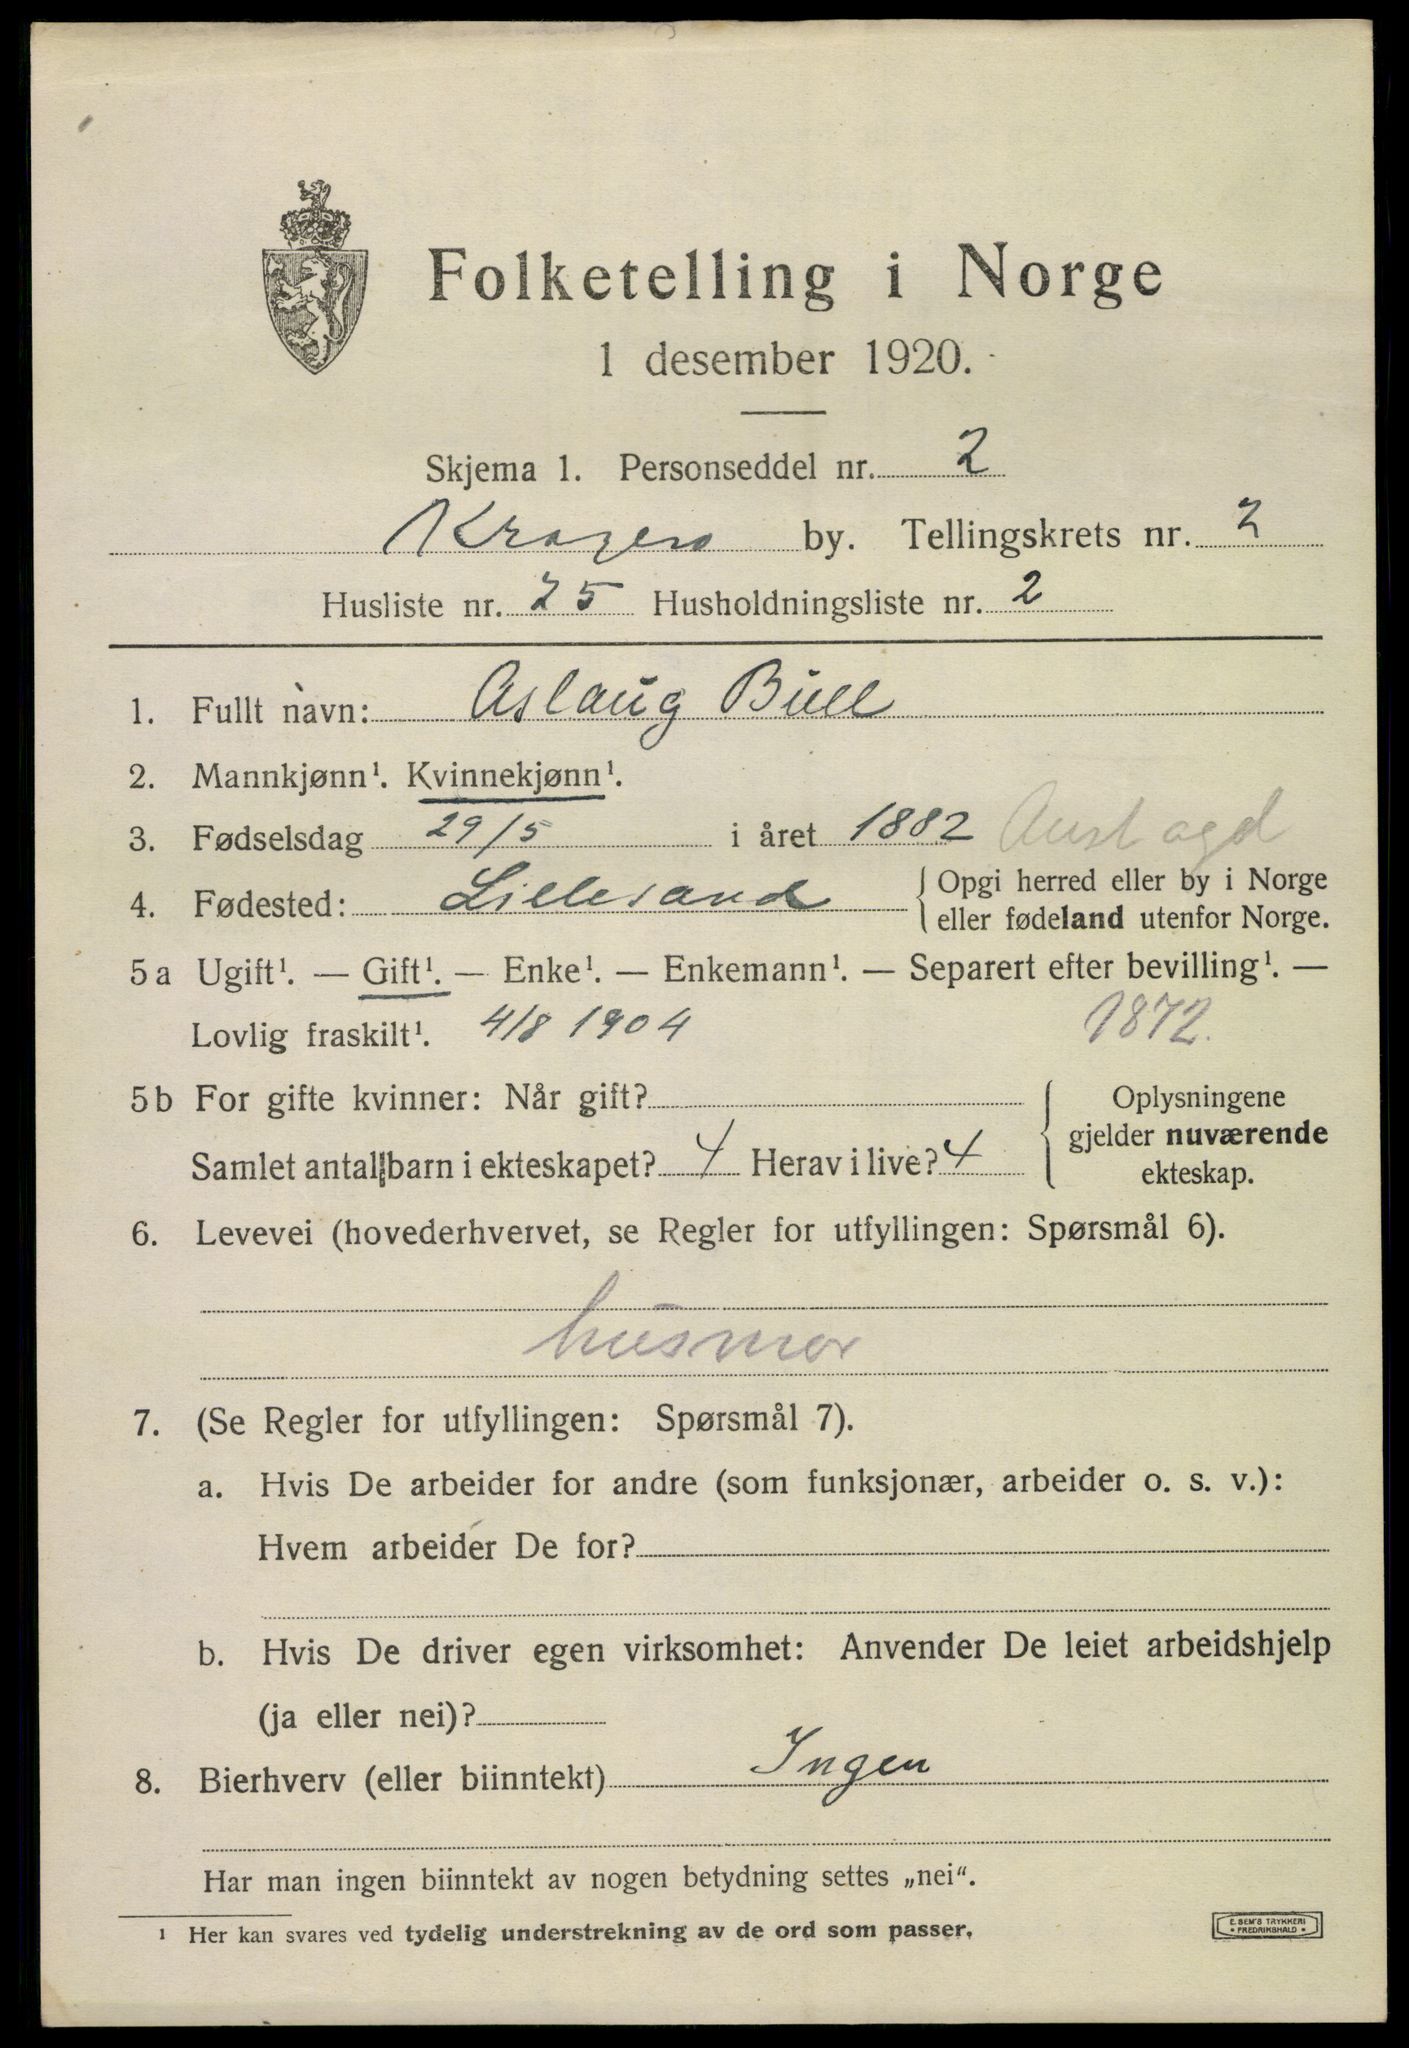 Folketelling i Norge
1 desember 1920.
Skjema 1. Personseddel nr. 2
Kragerø by. Tellingskrets nr. 2
Husliste nr. 25 Husholdningsliste nr. 2
1. Fullt navn: Aslaug Bull
2. Mannkjønn¹. Kvinnekjønn¹.
3. Fødselsdag 29/5 i året 1882 Aust agd
4. Fødested: Lillesand { Opgi herred eller by i Norge
eller fødeland utenfor Norge.
5 a Ugift¹. — Gift¹. — Enke¹. — Enkemann¹. — Separert efter bevilling¹. —
Lovlig fraskilt¹. 4/8 1904 1872.
5 b For gifte kvinner: Når gift? { Oplysningene
gjelder nuværende
ekteskap.
Samlet antal barn i ekteskapet? 4 Herav i live? 4
6. Levevei (hovederhvervet, se Regler for utfyllingen: Spørsmål 6).
husmor
7. (Se Regler for utfyllingen: Spørsmål 7).
a. Hvis De arbeider for andre (som funksjonær, arbeider o. s. v.):
Hvem arbeider De for?
b. Hvis De driver egen virksomhet: Anvender De leiet arbeidshjelp
(ja eller nei)?
8. Bierhverv (eller biinntekt) Ingen
Har man ingen biinntekt av nogen betydning settes „nei“.
¹ Her kan svares ved tydelig understrekning av de ord som passer.
E. SEM'S TRYKKERI
• FREDRIKSHALD •